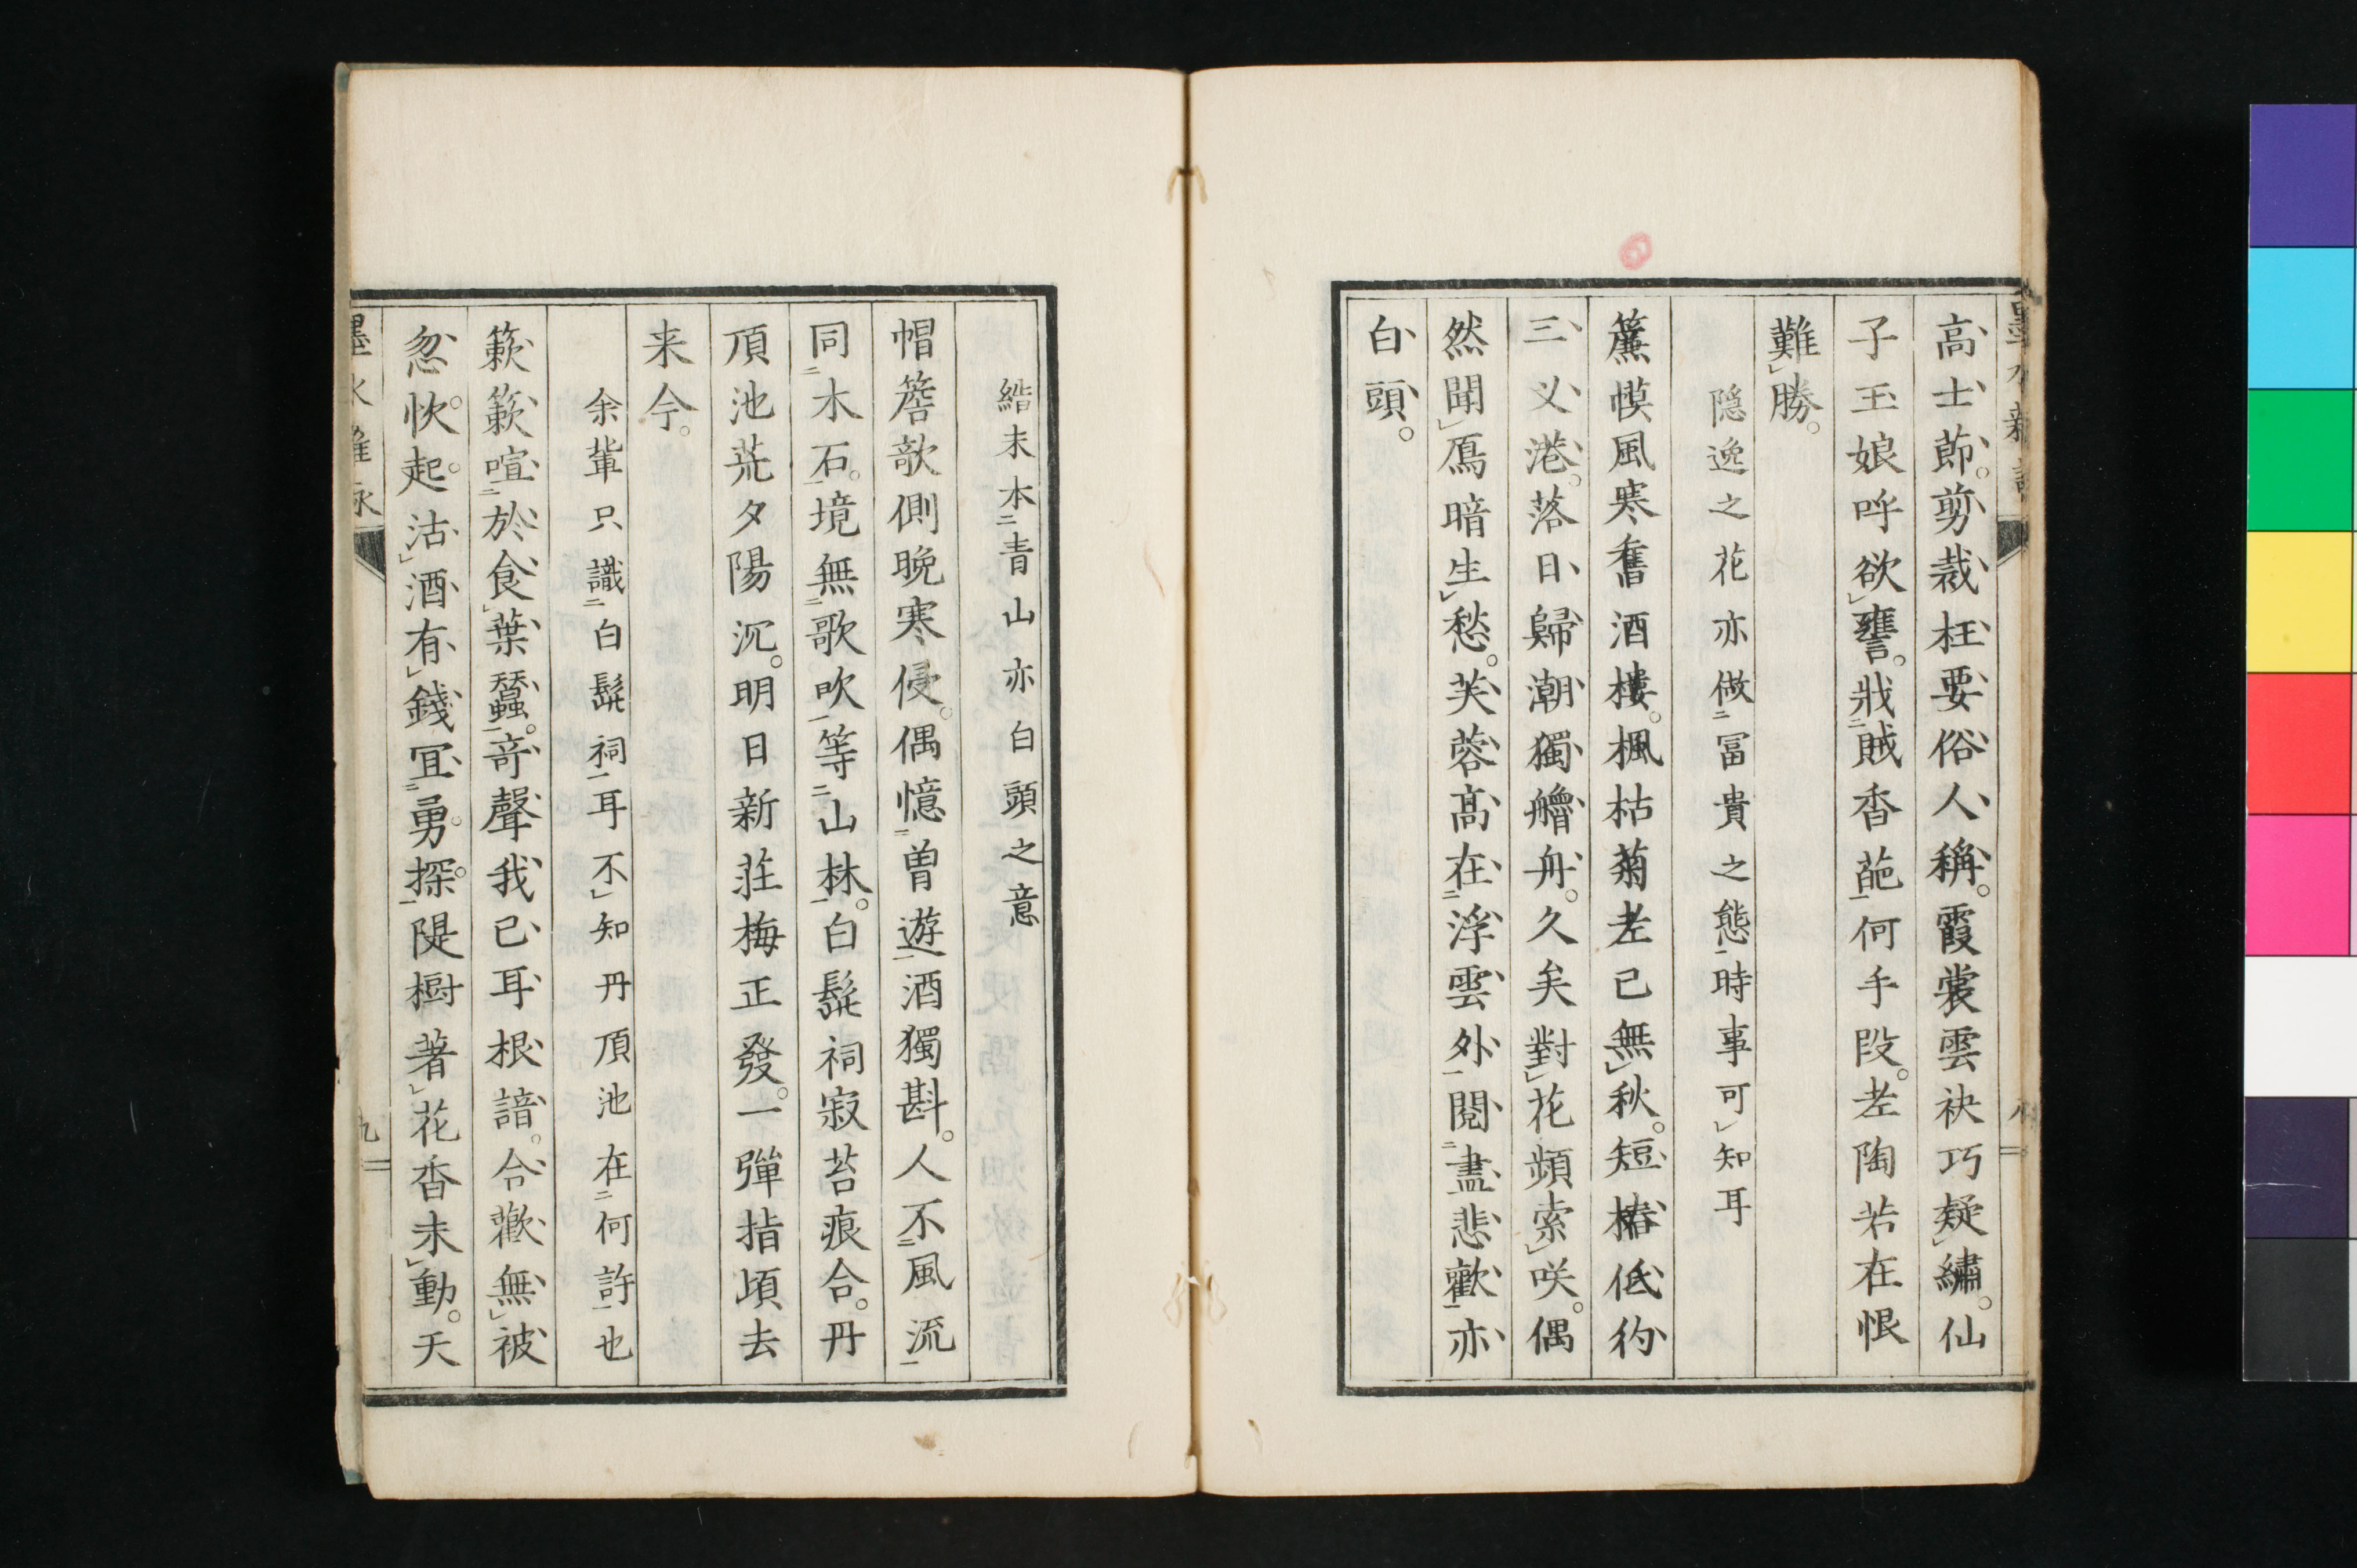 高士節。剪裁枉要俗人稱。霞裳雲袂巧疑繡。仙
子玉娘呼欲譍。戕賊香葩何手段。老陶若在恨
難勝。
隠逸之花亦倣冨貴之態時事可知耳
簾幙風寒舊酒樓。楓枯菊老已無秋。短樁低彴
三乂港。落日歸潮獨艪舟。久矣對花頻索咲。偶
然聞鴈暗生愁。芙蓉髙在浮雲外閲盡悲歡亦
白頭。
緒未本青山亦白頭之意
帽簷欹側晩寒侵。偶憶曽遊酒獨斟。人不風流
同木石。境無歌吹等山林。白髭祠寂苔痕合。丹
頂池荒夕陽沉。明日新莊梅正發。一彈指頃去
来今。
余輩只識白髭祠耳不知丹頂池在何許也
簌簌喧於食葉蠶。竒聲我已耳根諳。令歡無被
忽怏起。沽酒有錢冝勇探。隄樹著花香未動。天
墨水雜詠
九